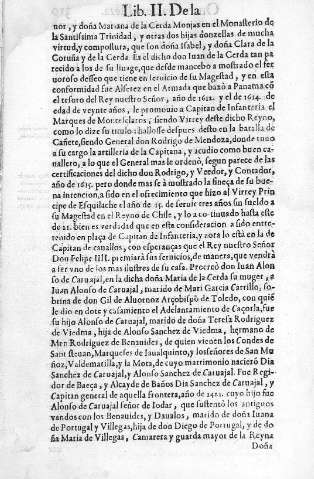 Lib. II. De la
nor, y doña Mariana de la Cerda Monjas en el Monasterio de
la Santissima Trinidad, y otras dos hijas donzellas de mucha
virtud, y compostura, que son doña Isabel, y doña Clara de la
Coruña y de la Cerda. Es el dicho don Iuan de la Cerda tan pa
recido a los de su linage, que desde mancebo a mostrado el fer
uoroso desseo que tiene en seruicio de su Magestad, y en esta
conformidad fue Alferez en el Armada que baxò a Panama cõ
el tesoro del Rey nuestro Señor, año de 1612. y el de 1614. de
edad de veynte años, le promouio a Capitan de Infanteria el
Marques de Montesclaros, siendo Virrey deste dicho Reyno,
como lo dize su titulo: hallosse despues desto en la batalla de
Cañete, siendo General don Rodrigo de Mendoza, donde tuuo
a su cargo la artilleria de la Capitana, y acudio como buen ca-
uallero, a lo que el General mas le ordenò, segun parece de las
certificaciones del dicho don Rodrigo, y Veedor, y Contador,
año de 1615. pero donde mas se a mostrado la fineça de su bue-
na intencion, a sido en el ofrecimiento que hizo al Virrey Prin
cipe de Esquilache el año de 15. de seruir tres años sin sueldo a
su Magestad en el Reyno de Chile, y lo a continuado hasta este
de 21. bien es verdad que en esta consideracion a sido entre-
tenido en plaça de Capitan de Infanteria, y aora lo està en la de
Capitan de cauallos, con esperanças que el Rey nuestro Señor
Don Felipe IIII. premiarà sus seruicios, de manera, que vendrà
a ser vno de los mas ilustres de su casa. Procreò don Iuan Alon
so de Caruajal, en la dicha doña Maria de la Cerda su muger, a
Iuan Alonso de Caruajal, marido de Mari Garcia Carrillo, so-
brina de don Gil de Aluornoz Arçobispo de Toledo, con quiẽ
le dio en dote y casamiento el Adelantamiento de Caçorla, fue
su hijo Alonso de Caruajal, marido de doña Teresa Rodriguez
de Viedma, hija de Alonso Sanchez de Viedma, hermano de
Men Rodriguez de Benauides, de quien vienen los Condes de
Sant Steuan, Marqueses de Iaualquinto, y los señores de San Mu
ñoz, Valdematilla, y la Mota, de cuyo matrimonio nacierõ Dia
Sanchez de Caruajal, y Alonso Sanchez de Caruajal. Fue Regi-
dor de Baeça, y Alcayde de Baños Dia Sanchez de Caruajal, y
Capitan general de aquella frontera, año de 1421. cuyo hijo fue
Alonso de Caruajal señor de Iodar, que sustentò los antiguos
vandos con los Benauides, y Daualos, marido de doña Iuana
de Portugal y Villegas, hija de don Diego de Portugal, y de do
ña Maria de Villegas, Camarera y guarda mayor de la Reyna
Doña